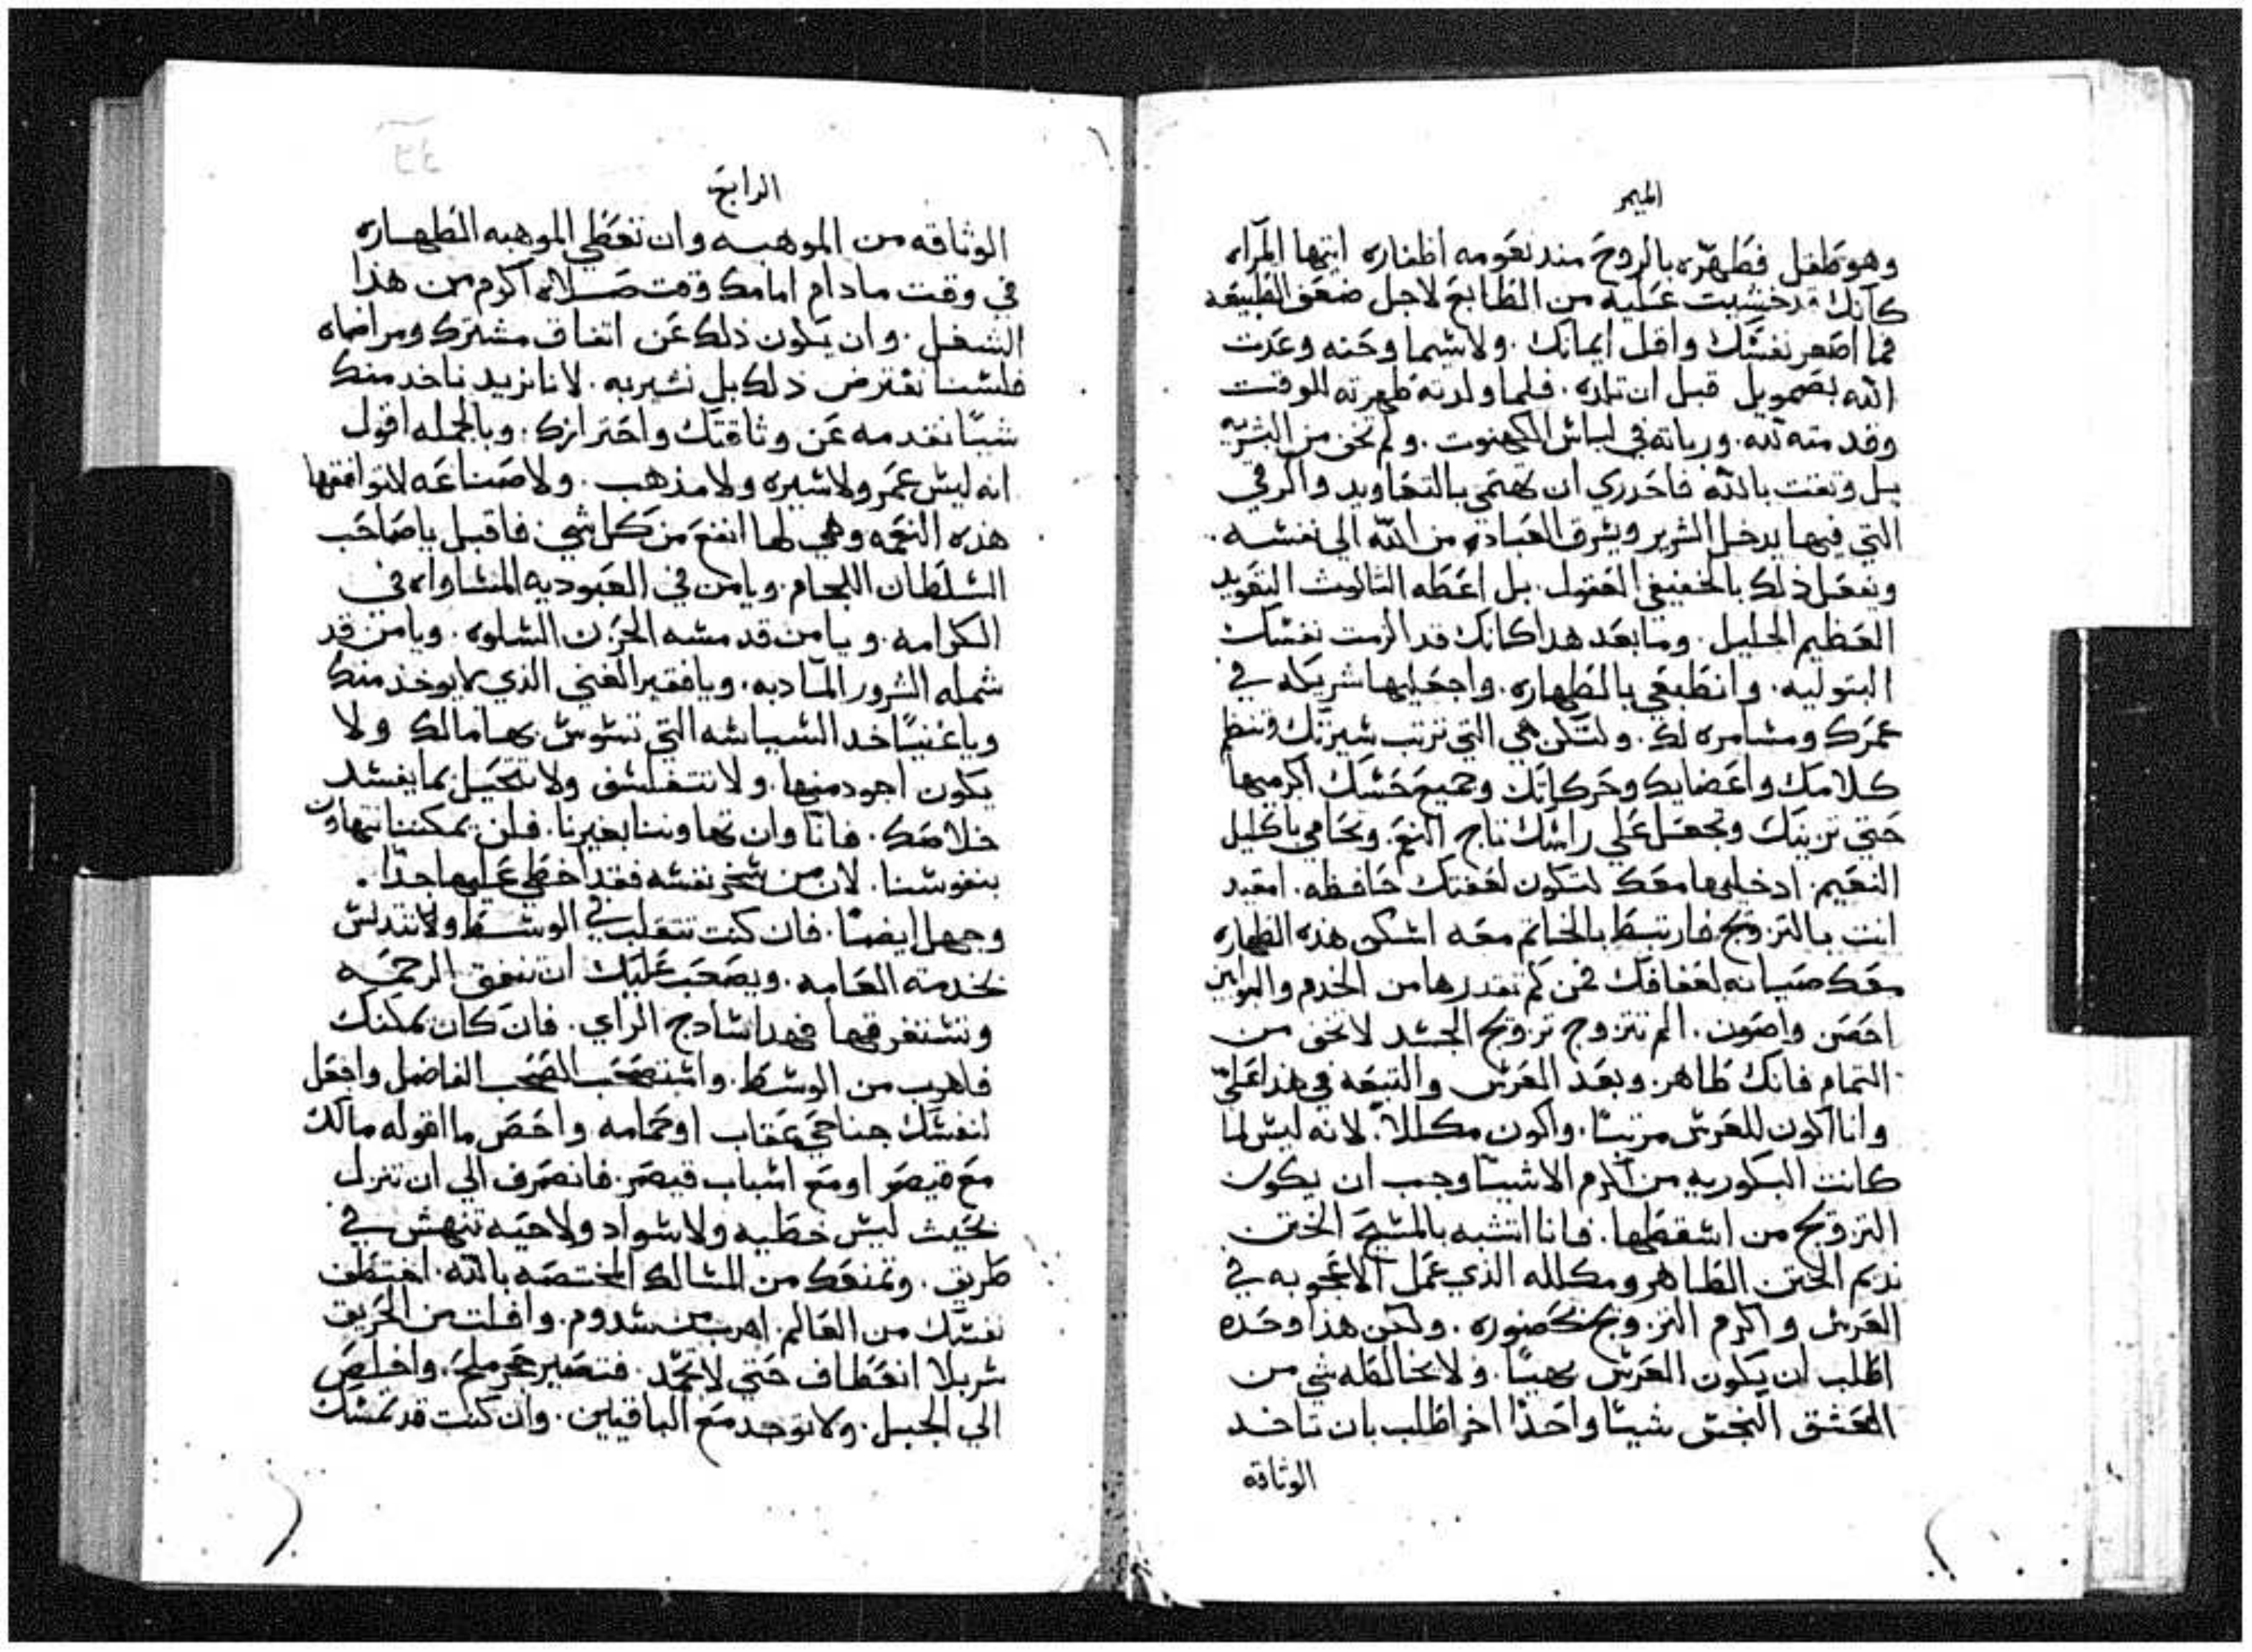 الميمر
وهو طفل فطهره بالروح مند نعومه اظفاره ايتها المرآه
كانك قد خشيت عليه من الطابع لاجل ضعف الطبيعه
فما اصغر نفسك واقل ايمانك . ولاسيما وحنه وعدت
الله بصمويل قبل ان تلده . فلما ولدته طهرته للوقت
وقدمته لله . وربته في لباس الكهنوت . ولم تخف من البشريه
بل وتقت بالله فاحدري ان تهتمي بالتعاويد والرقي
التي فيها يدخل الشرير ويسرق العباده من الله الي نفسه .
ويفعل ذلك بالخفيفي العقول . بل اعطه الثالوث التعويد
العظيم الجليل . وما بعد هدا كانك قد الزمت نفسك
البتوليه . وانطبعي بالطهاره . واجعليها شريكه في
عمرك ومسامره لك . ولتكن هي التي ترتب سيرتك وتنظم
كلامك واعضايك وحركاتك وجميع حسك اكرميها
حتي تزينك وتجعل علي راسك تاج النعم . وتحامي باكليل
النعيم . ادخليها معك لتكون لعفتك حافظه . امقيد
انت بالتزويج فارتبط بالخاتم معه اسكن هذه الطهاره
معك صيانه لعفافك فمن كم تقدرها من الخدم والبوابين
احصن واصون . الم تتزوج تزويج الجسد لا تخف من
التمام فانك طاهر . وبعد العرس والتبعه في هذا عليّ
وانا اكون للعرس مرتبًا . واكون مكللاً . لانه ليس لما
كانت البكوريه من اكرم الاشيا وجب ان يكون
التزويج من اسقطها . فانا اتشبه بالمسيح الختن
نديم الختن الطاهر ومكلله الذي عمل الاعجوبه في
العرس واكرم التزويج بحضوره . ولكن هذا وحده
اطلب ان يكون العرس بهيًا . ولا يخالطه شي من
العشق النجس شيًا واحدًا اخر اطلب بان تاخد
الوثاقه
الرابع
الوثاقه من الموهبه وان تعطي الموهبه الطهاره
في وقت مادام امامك وقت صلاه اكرم من هذا
الشغل . وان يكون ذلك عن اتفاق مشترك ومراضاه
فلسنا نفترض ذلك بل نشير به . لانا نزيد ناخد منك
شيًا نقدمه عن وثاقتك واحترازك . وبالجمله اقول
انه ليس عمر ولا سيره ولا مذهب . ولا صناعه لا توافقها
هذه النعمه وهي لها انفع من كل شي . فاقبل يا صاحب
السلطان اللجام . ويامن في العبوديه المساواه في
الكرامه . ويا من قد مسه الحزن السلوه . ويامن قد
شمله السرور المادبه . ويافقير الغني الذي لا يوخذ منك
وياغنيًا خد السياسه التي تسوس بها مالك ولا
يكون اجود منها . ولا تتفلسف ولا تتحيل بما يفسد
خلاصك . فانا وان تهاونا بغيرنا . فلن يمكننا نتهاون
بنفوسنا . لان من سخر نفسه فقد اخطي عليها جدًا .
وجهل ايضًا . فان كنت تتقلب في الوسط ولا تتدلس
بخدمته العامه . ويصعب عليك ان تنفق الرحمه
وتستغرقها فهدا سادج الراي . فان كان يمكنك
فاهرب من الوسط . واستصحب الصحب الفاضل واجعل
لنفسك جناحي عقاب او حمامه واخص ما اقوله مالك
مع قيصر او مع اسباب قيصر . فانصرف الي ان تنزل
بحيث ليس خطيه ولا سواد ولا حيه تنهش في
طريق . وتمنعك من المسالك المختصه بالله . اختطف
نفسك من العالم . اهرب من سدوم . وافلت من الحريق
سر بلا انعطاف حتي لا تجمد . فتصير حجر ملح . واخلص
الي الجبل . ولا توجد مع الباقيين . وان كنت قد تمسك